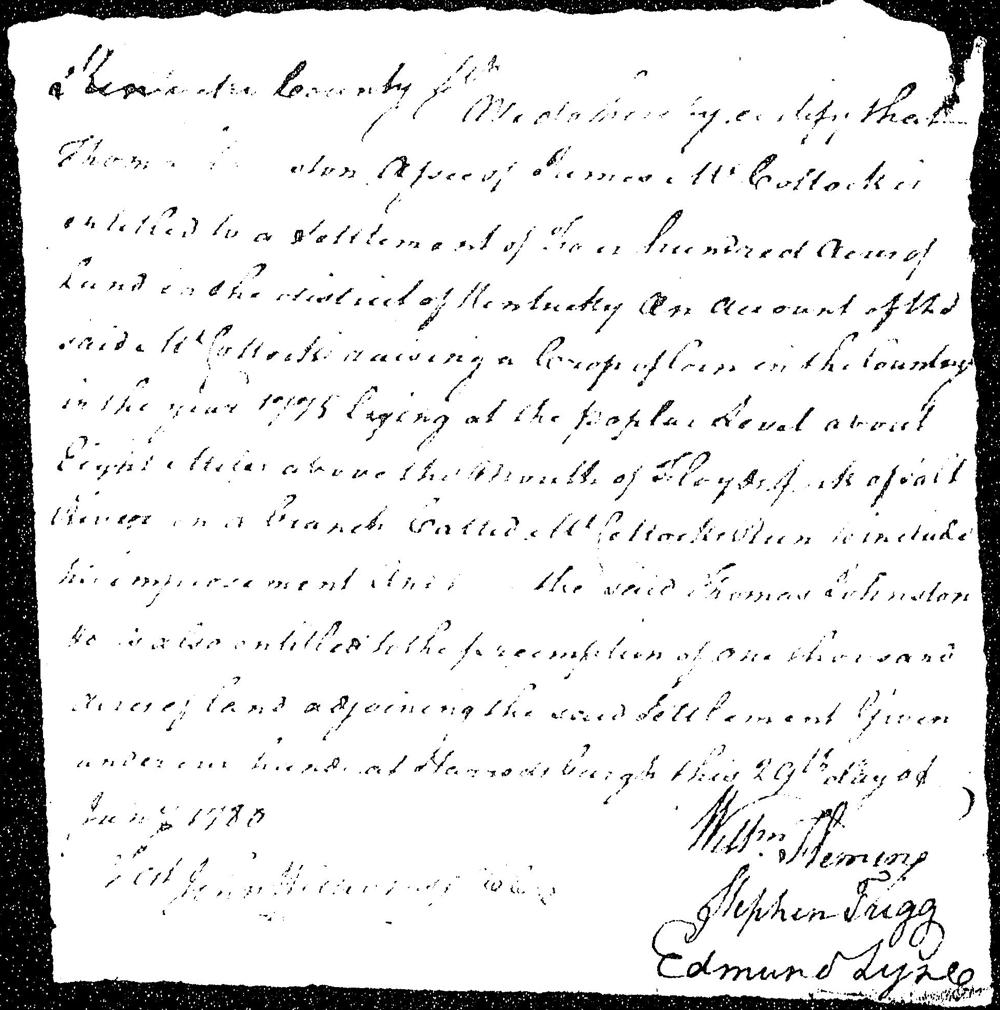 Kentucke County Sct
We do hereby certify that
Thomas Johnston Assee of James McCollock is
entitled to a Settlement of Four hundred Acres of
Land in the district of Kentucky on account of the
said McCollocks raising a Crop of Corn in the Country
in the year 1775 lying at the poplar Level about
Eight Miles above the Mouth of Floyds fork of Salt
River on a branch Called McCollocks Run to include
his improvement And the said Thomas Johnston
is also entitled to the preemption of one thousand
acres of land adjoining the said Settlement Given
under our hands at Harrodsburgh this 29th day of
Jany 1780
Test John Williams
Willm Fleming
Stephen Trigg
Edmund Lyne